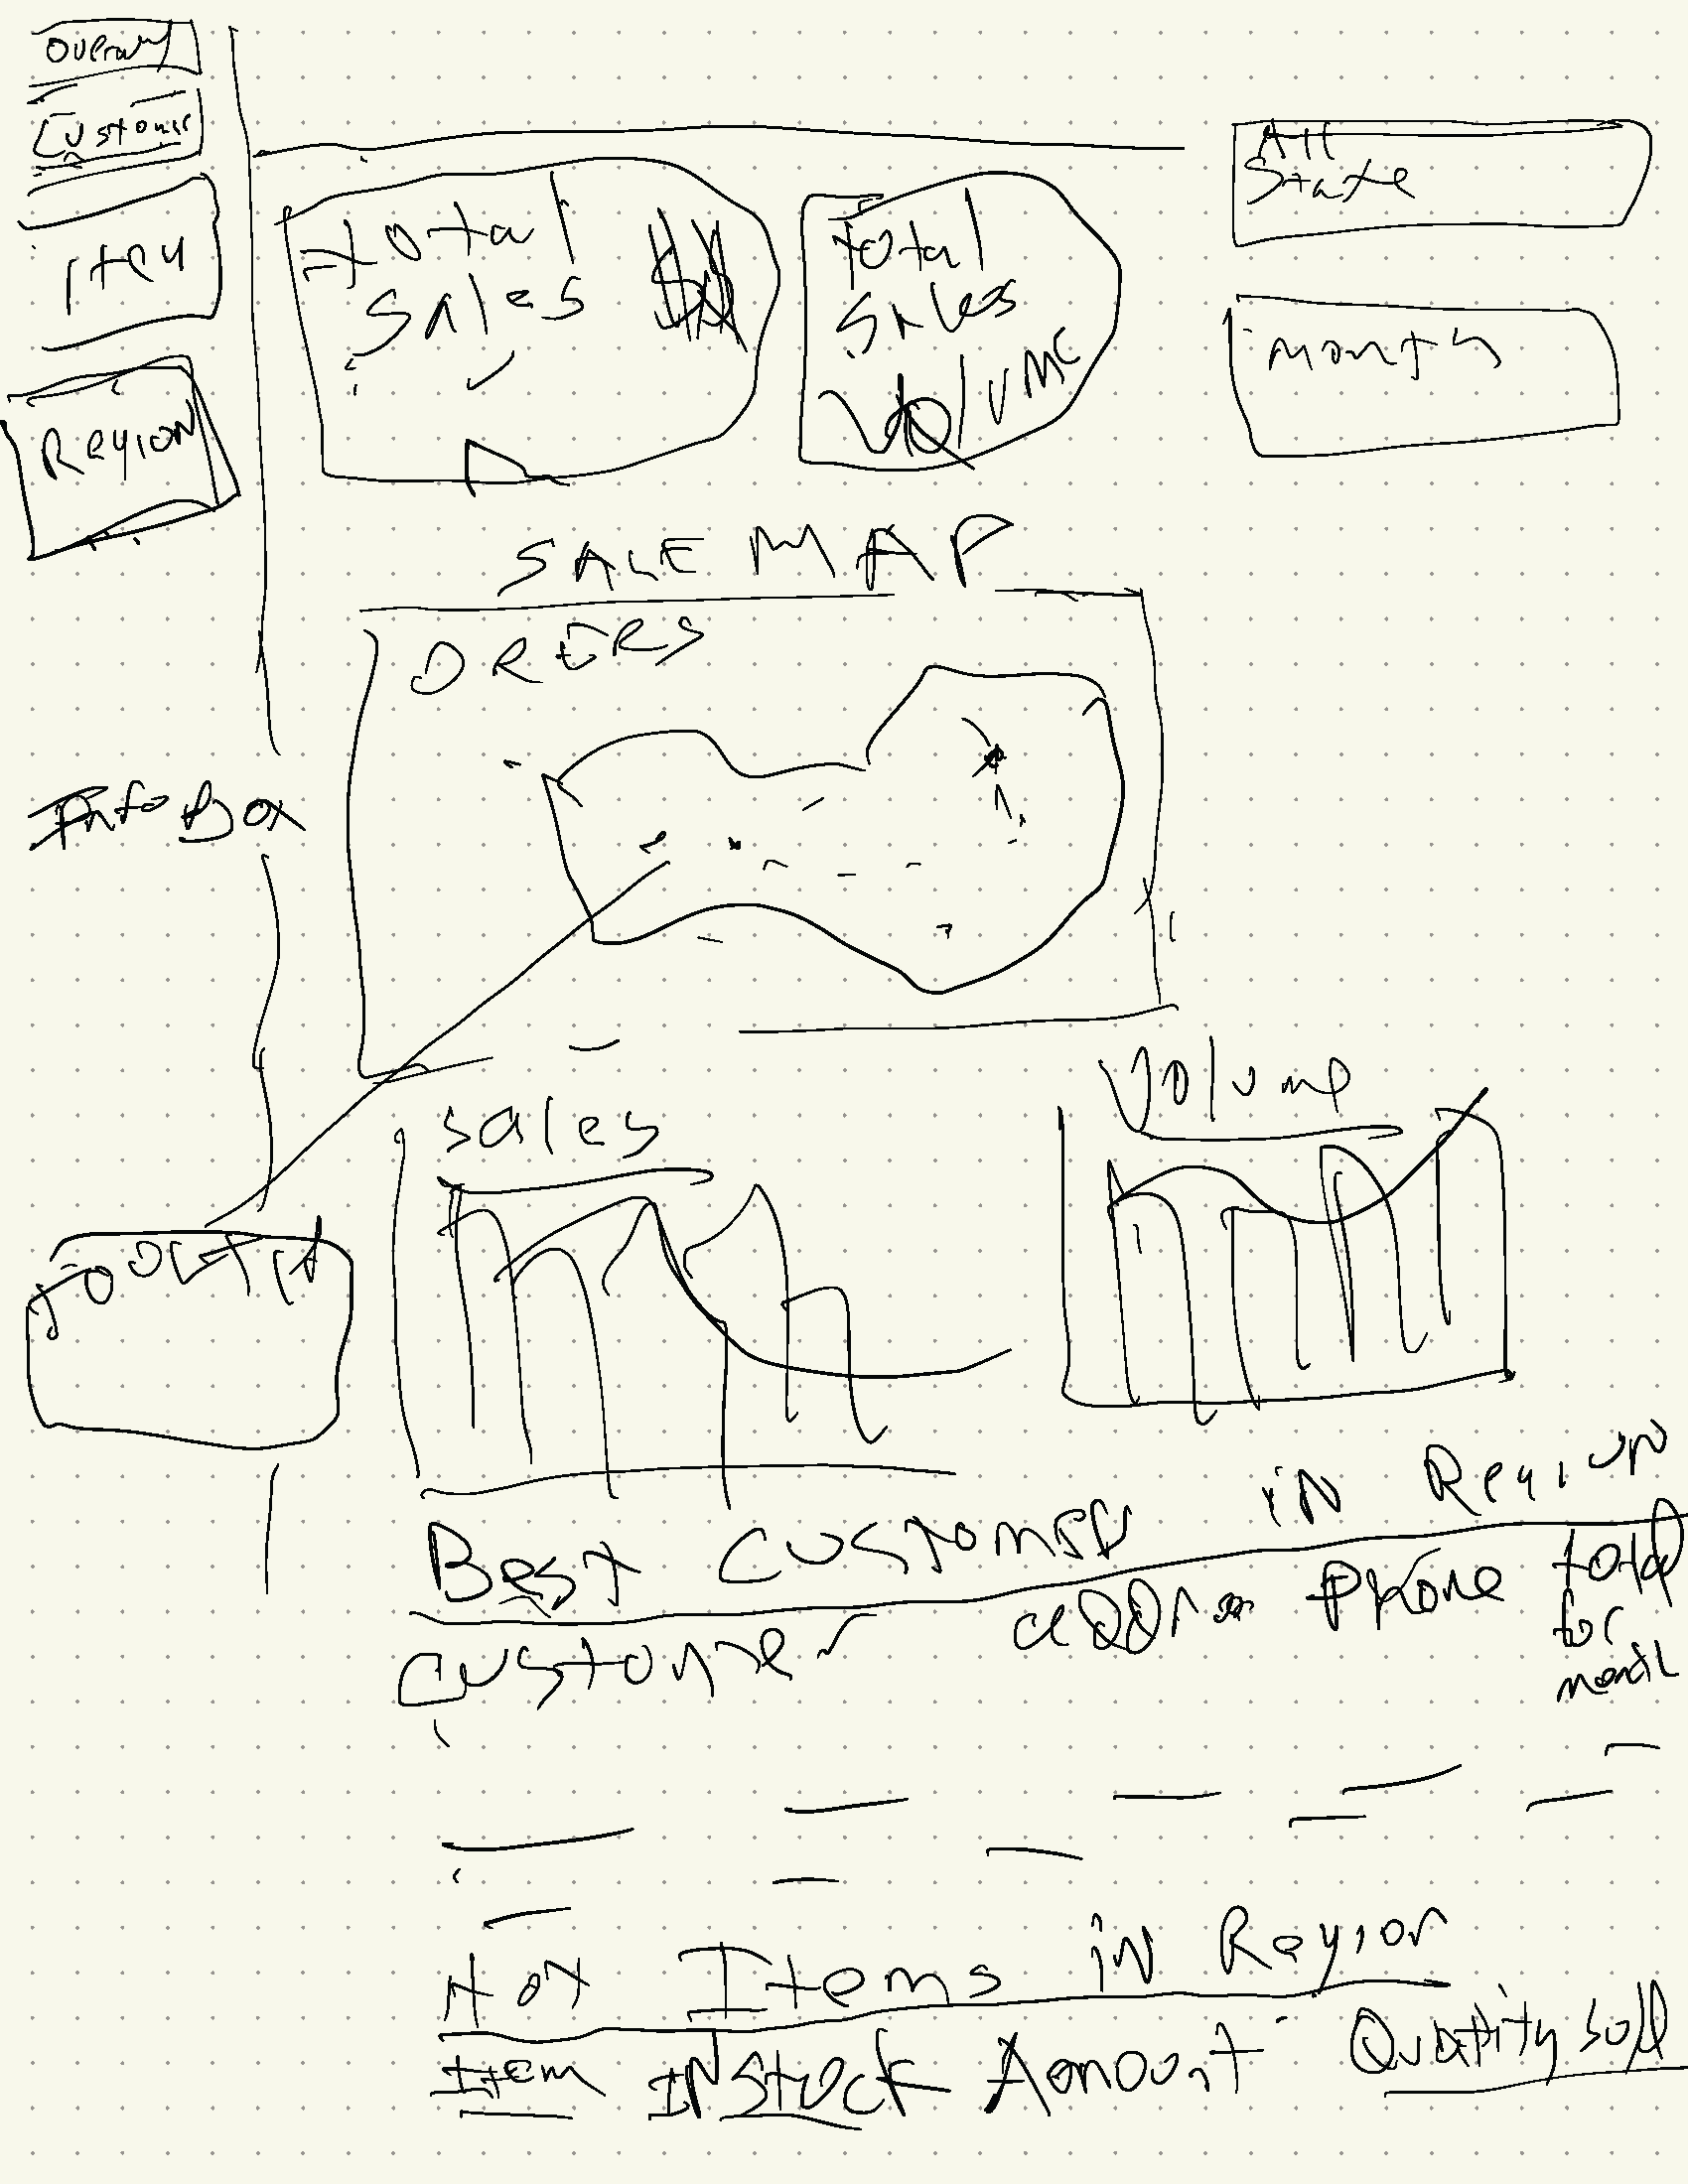 Overview
Customer
Item
Region
total
Sales $$
total
Sales
Volume
All
State
Month
SALE MAP
ORERS
Info Box
Sales
Volume
Best Customer in Region
Customer address Phone total
for
month
Hot Items in Region
Item INStock Amount Quantity Sold